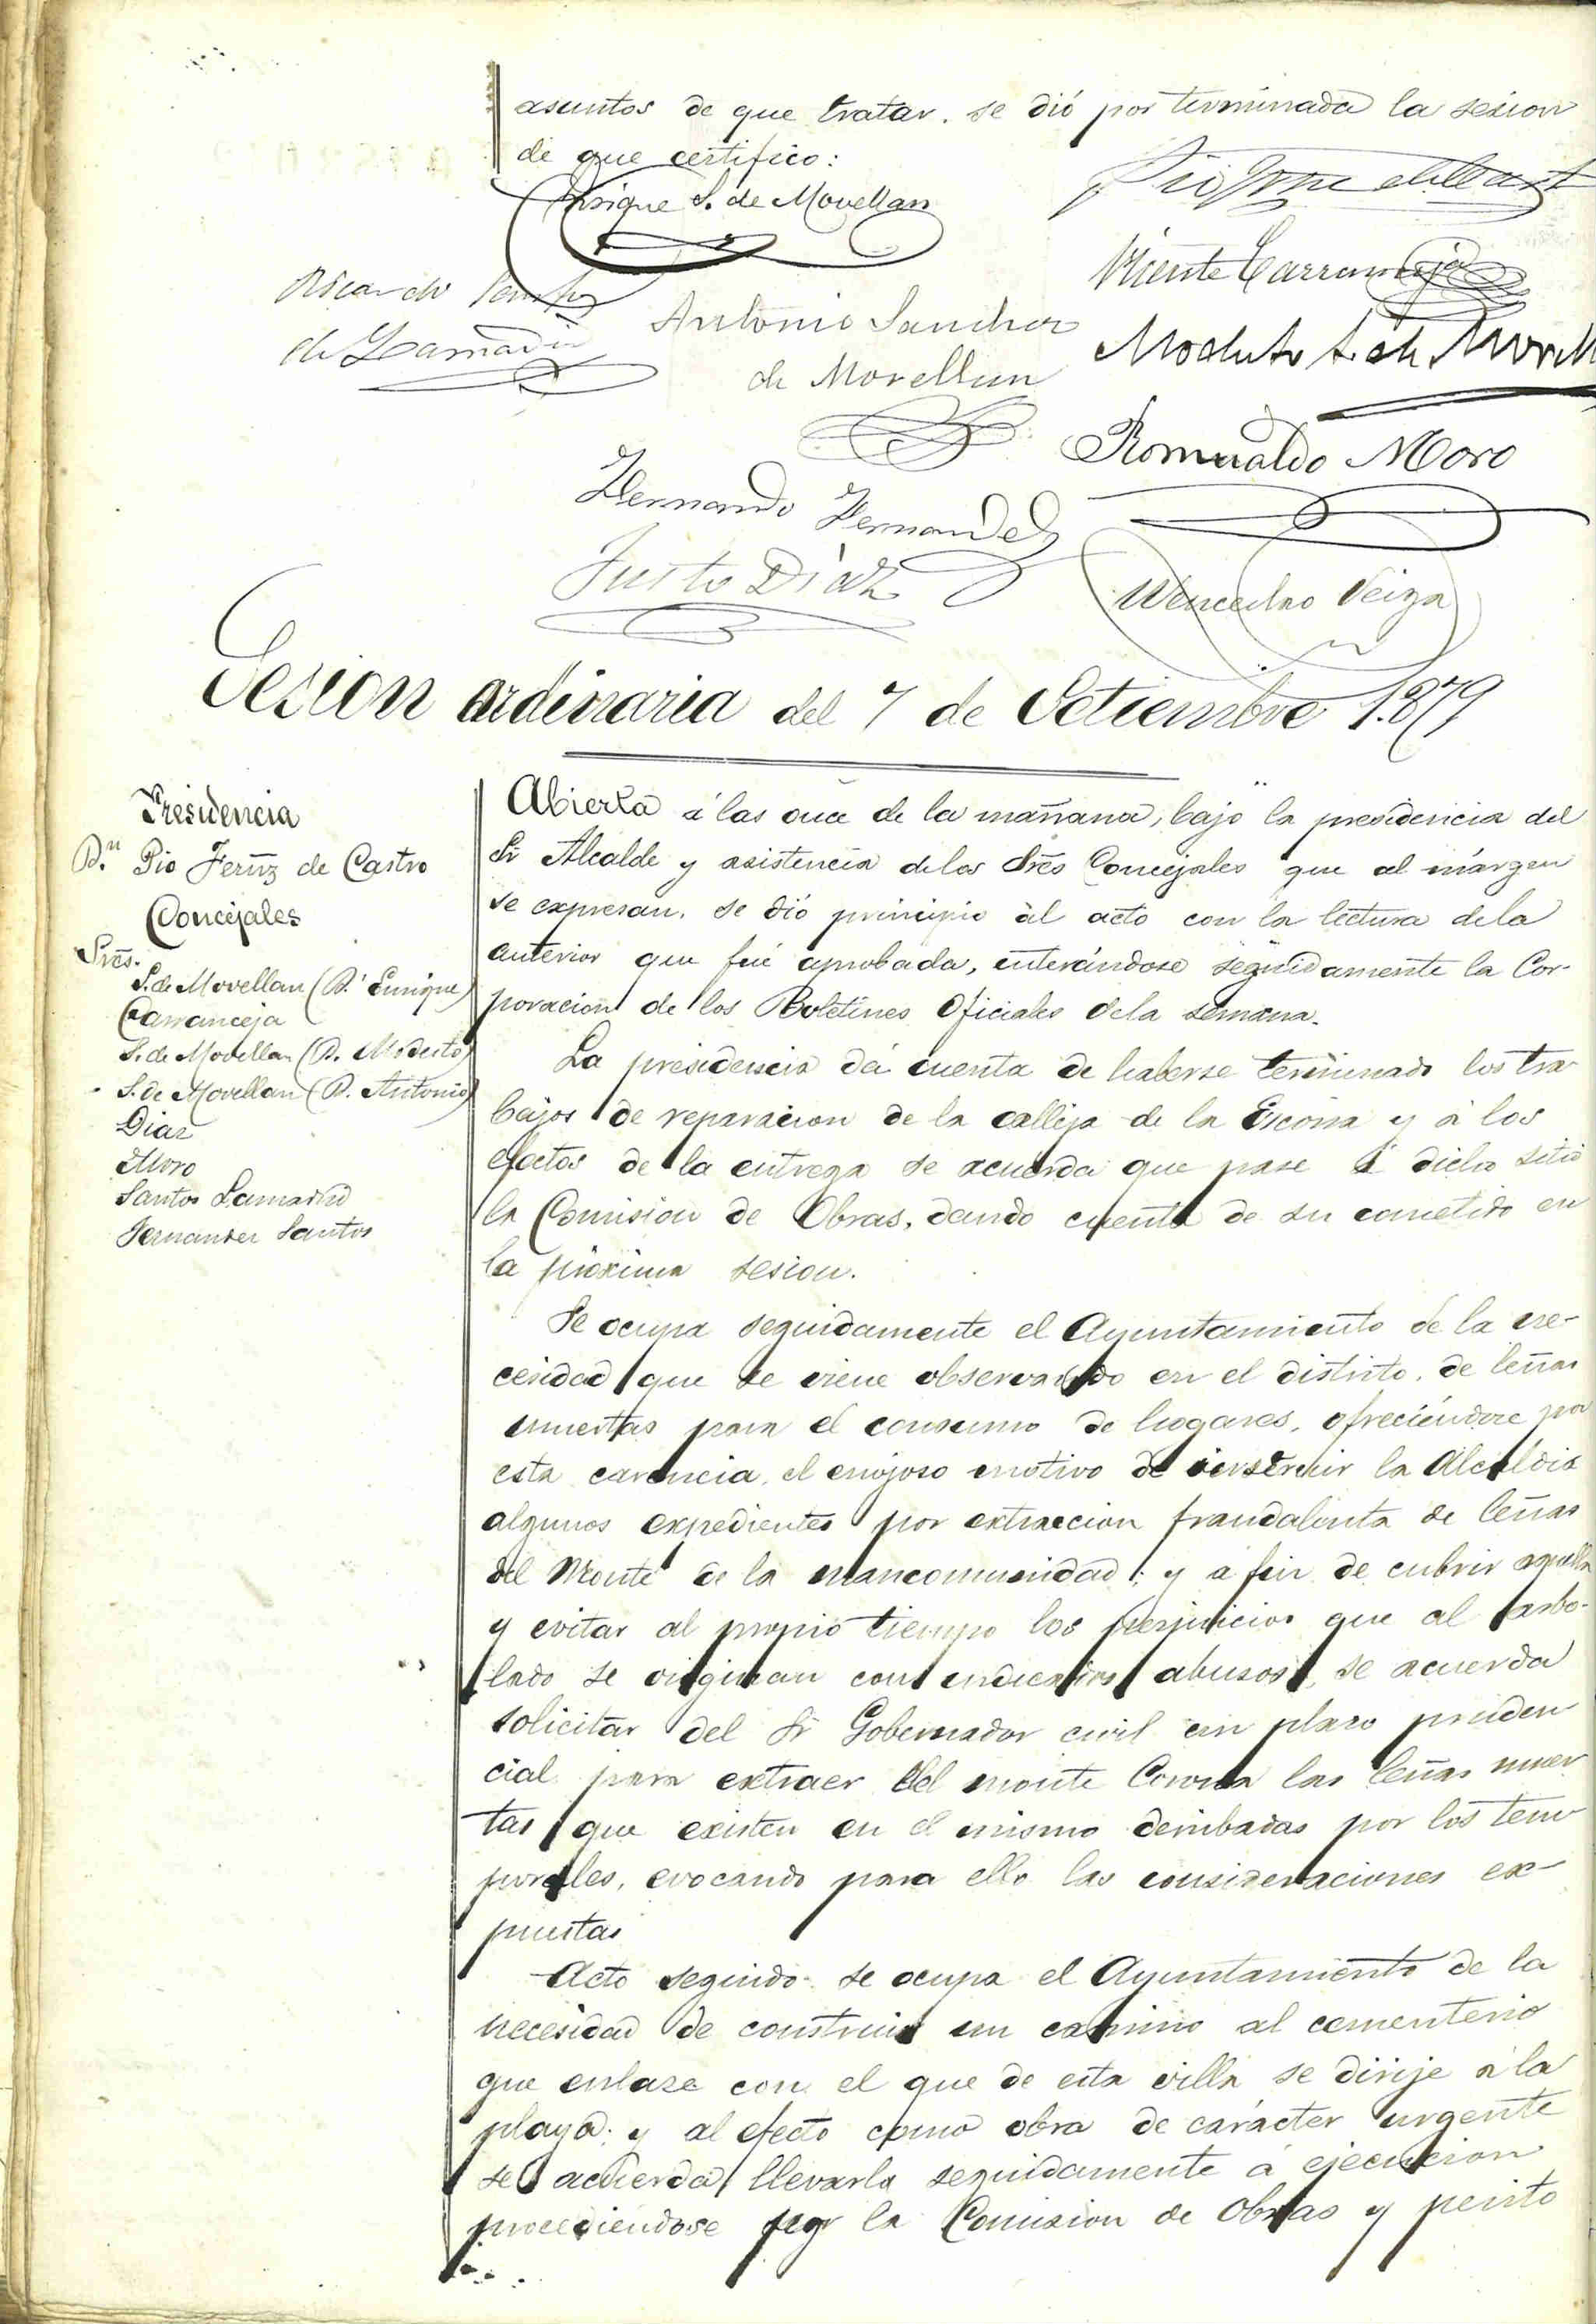 asuntos de que tratar. se dió por terminada la sesion
de que certifico:
Enrique S. de Movellan
Vicente Carranceja
Ricardo Santos
de Lamadrid
Antonio Sanchez
de Movellan
Modesto S. de Movell
Romualdo Moro
Fernando Fernandez
Justo Diaz
Wenceslao Veiga
Sesion ordinaria del 7 de Setiembre 1.879
Presidencia
D.n Pio Fernz de Castro
Concejales
Sres.
S. de Movellan (D. Enrique)
Carranceja
S. de Movellan (D. Modesto)
S. de Movellan (D. Antonio)
Diaz
Moro
Santos Lamadrid
Fernandez Santos
Abierta á las once de la mañana, bajo la presidencia del
Sr Alcalde y asistencia delos Sres Concejales que al márgen
se expresan. se dió principio al acto con la lectura dela
anterior que fué aprobada, enterándose seguidamente la Cor-
poracion de los Boletines Oficiales dela semana.
La presidencia dá cuenta de haberse terminado los tra
bajos de reparacion de la calleja de la y á los
efectos de la entrega se acuerda que pase á dicho sitio
la Comision de Obras, dando cuenta de su cometido en
la próxima sesion.
Se ocupa seguidamente el Ayuntamiento de la ne-
cesidad que se viene observando en el distrito, de leñas
muertas para el consumo de hogares, ofreciéndose por
esta carencia, el enojoso motivo de instruir la Alcaldia
algunos expedientes por extraccion fraudalenta de leñas
del Monte de la mancomunidad; y a fin de cubrir aquella
y evitar al propio tiempo los perjuicios que al arbo-
lado se originan con indicados abusos, se acuerda
solicitar del Sr Gobernador civil un plazo pruden
cial para extraer del monte Corona las leñas muer
tas que existen en el mismo derribadas por los tem
porales, evocando para ello las consideraciones ex-
puestas
Acto seguido se ocupa el Ayuntamiento de la
necesidad de construir un camino al cementerio
que enlaze con el que de esta villa se dirije á la
playa; y al efecto como obra de carácter urgente
se acuerda llevarla seguidamente á ejecucion
procediendose por la Comision de Obras y perito